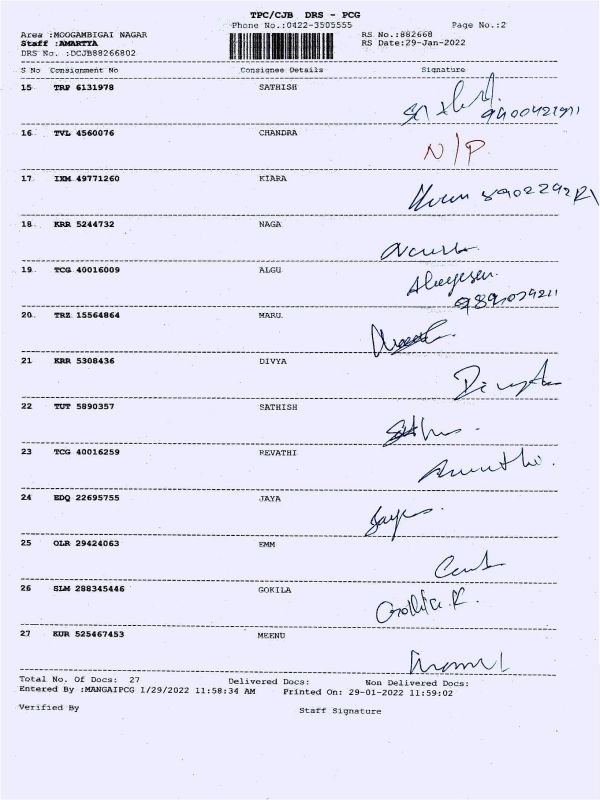 TPC/CJB DRS - PCG
Phone No.:0422-3505555 Page No.:2
Area :MOOGAMBIGAI NAGAR RS No.:882668
Staff :AMARTYA RS Date:29-Jan-2022
DRS No. :DCJB88266802
S No Consignment No Consignee Details Signature
15 TRP 6131978 SATHISH
16 TVL 4560076 CHANDRA
N/P
17 IXM 49771260 KIARA
18 KRR 5244732 NAGA
19 TCG 40016009 ALGU
20 TRZ 15564864 MARU
21 KRR 5308436 DIVYA
Divya
22 TUT 5890357 SATHISH
23 TCG 40016259 REVATHI
24 EDQ 22695755 JAYA
Jaya
25 OLR 29424063 EMM
26 SLM 288345446 GOKILA
Gokila R.
27 KUR 525467453 MEENU
Total No. Of Docs: 27 Delivered Docs: Non Delivered Docs:
Entered By :MANGAIPCG 1/29/2022 11:58:34 AM Printed On: 29-01-2022 11:59:02
Verified By Staff Signature